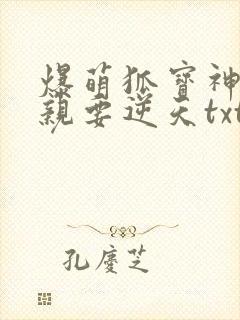 爆萌狐宝神
親要逆天txt
孔慶芝